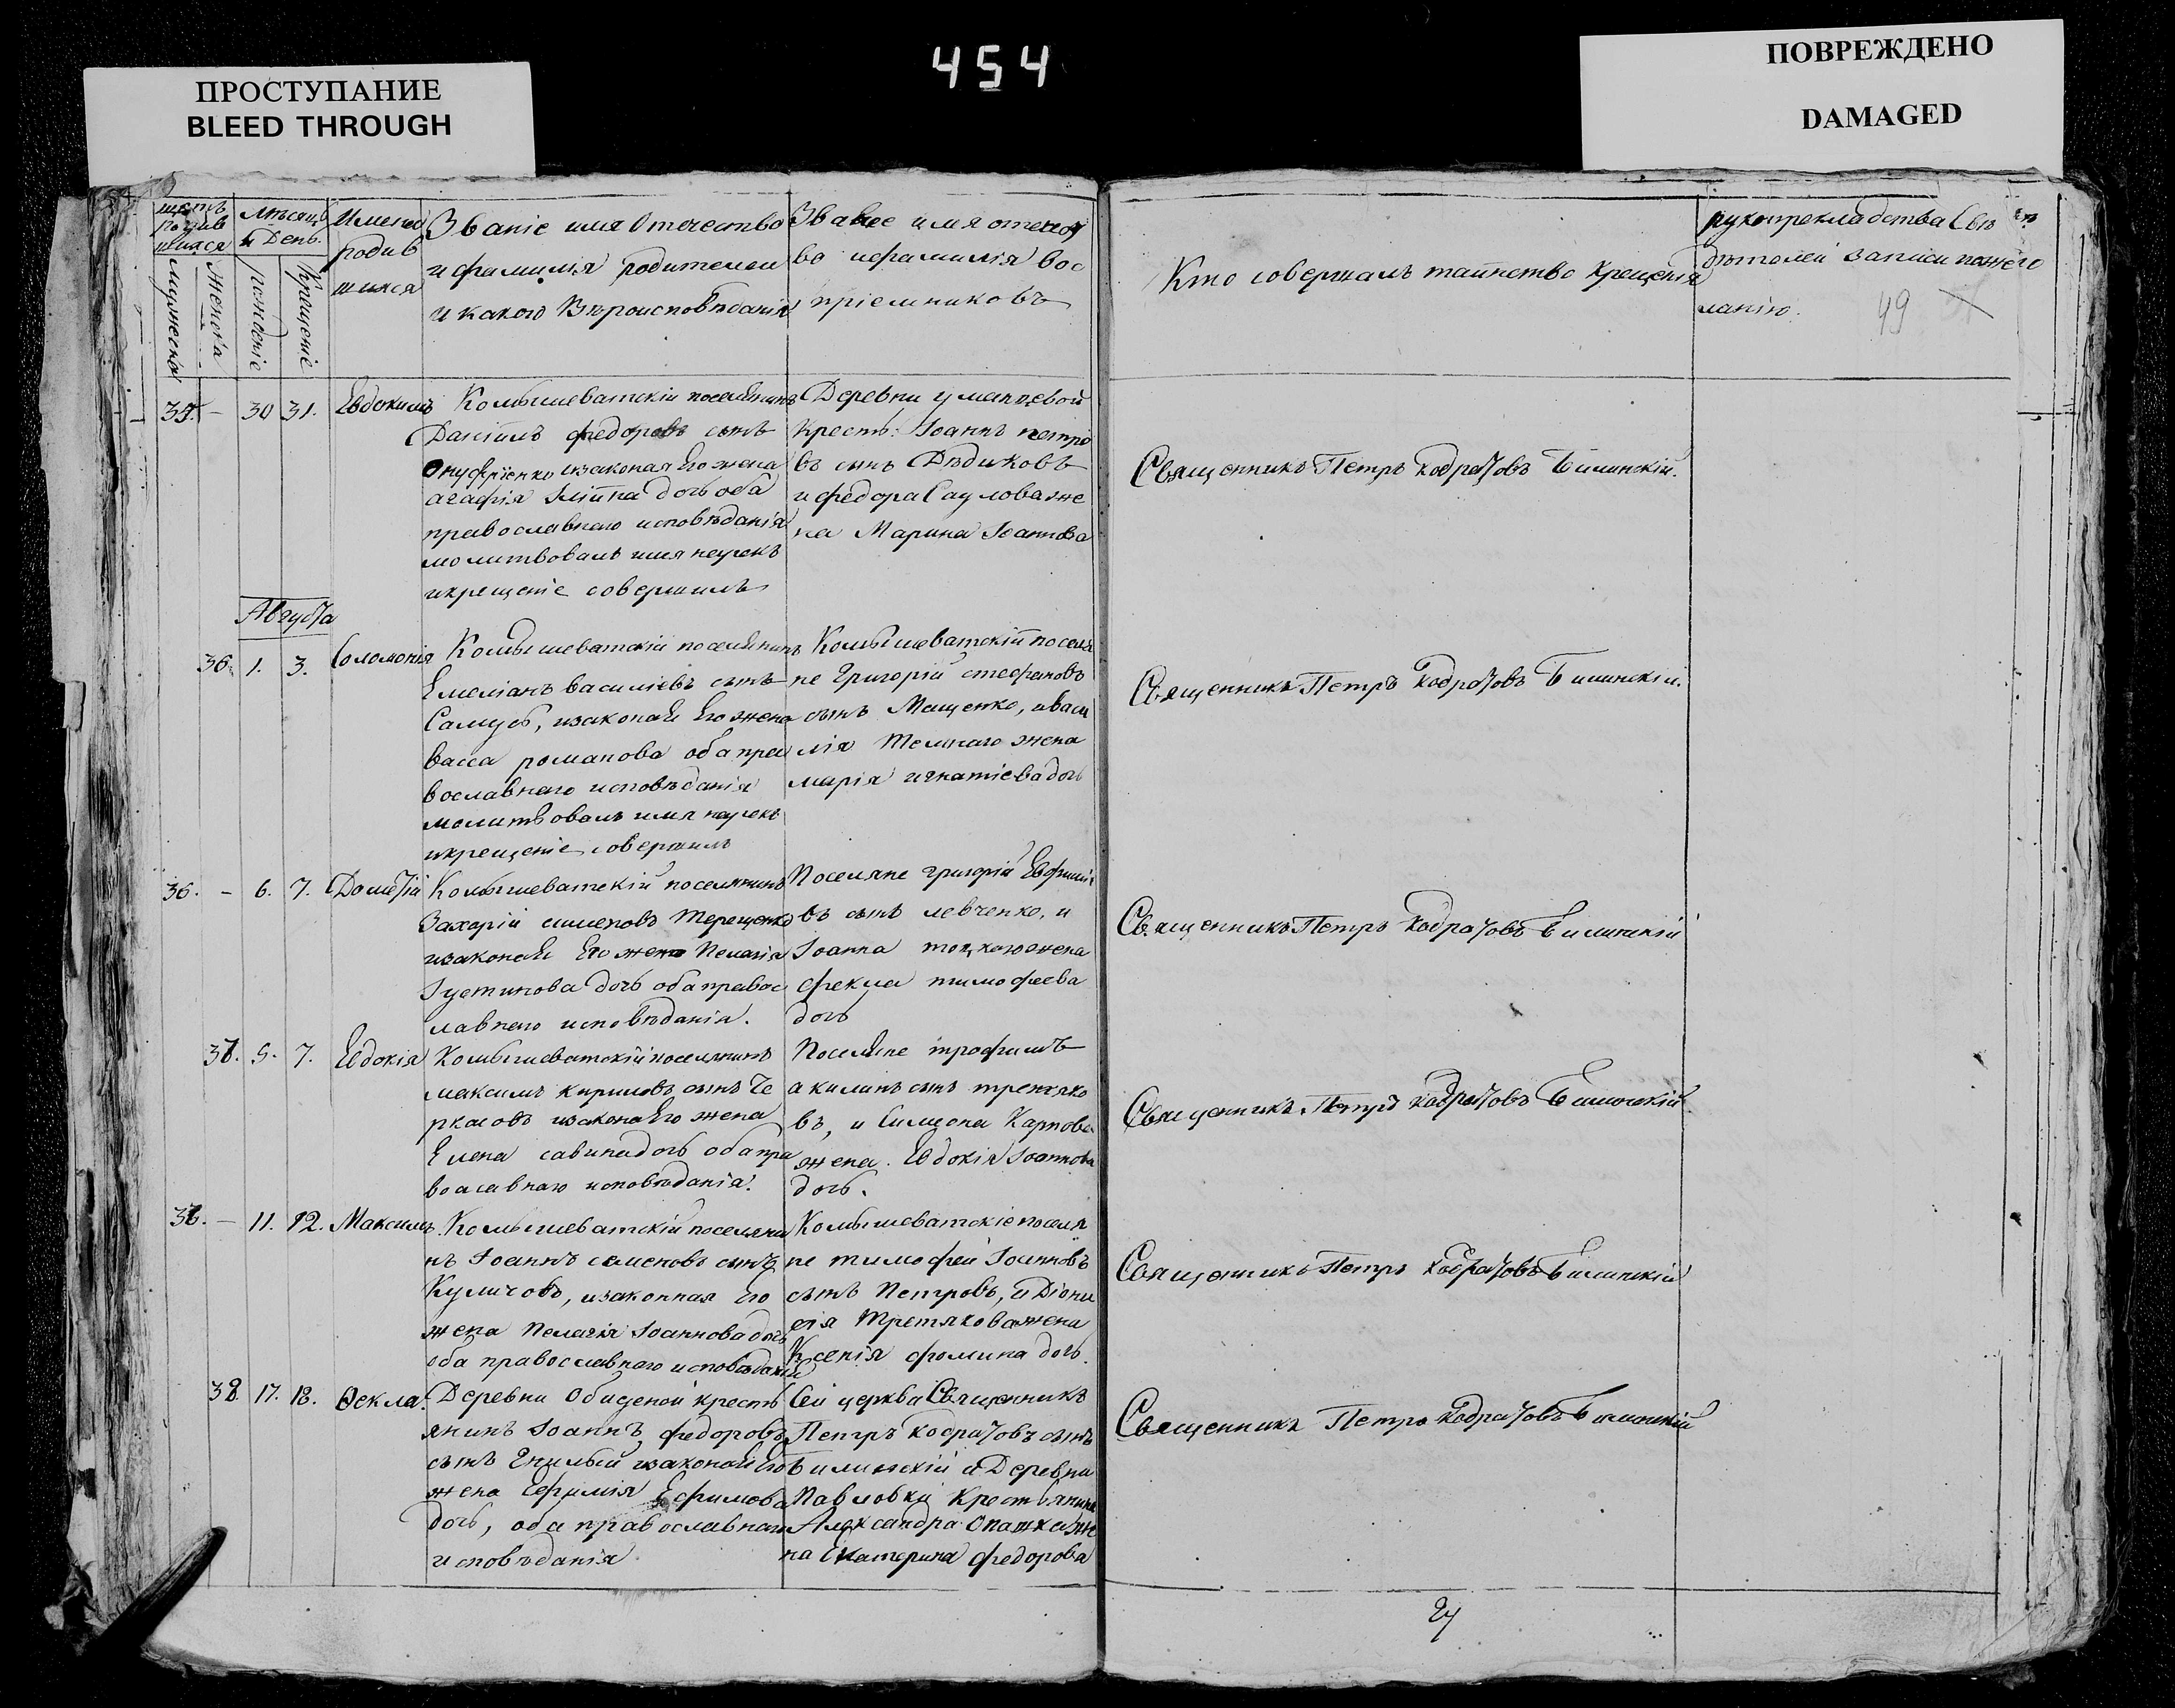 454
ПРОСТУПАНИЕ
BLEED THROUGH
ПОВРЕЖДЕНО
DAMAGED
мѣсяцъ
и День.
Имена
родив
шихся
мужеска
женска
рожденіе
крещеніе
Званіе имя Отечество
и фамилія родителей
и какого Вѣроисповѣданія
Званіе имя отечест
во и фамилія вос
пріемниковъ
Кто совершалъ таинство крещенія
рукоприкладства Сви
дѣтелей записи по же
ланію.
49
35. – 30 31. Евдокимъ
Комышеватскій поселянинъ
Даніилъ федоровъ сынъ
Онуфріенко изаконая Его жена
агафія дочь оба
православнаго исповѣданія
молитвовалъ имя нарекъ
икрещеніе совершилъ
Деревни уманцевой
крест: Іоаннъ петро
въ сынъ Дѣдиковъ
и федора Саулова же
на Марина Іоаннова
Священникъ Петръ кодратовъ Билинскій.
Августа
36. 1. 3. Соломонія
Комышеватскій поселянинъ
Емеліанъ василіевъ сынъ
Самусь, изаконая Его жена
васса романова оба пра
вославнаго исповѣданія
молитвовалъ имя нарекъ
икрещеніе совершилъ
Комышеватскій поселя
не Григорій стефановъ
сынъ Мащенко, иваси
лія темнаго жена
марія игнатіева дочь
Священникъ Петръ кодратовъ Билинскій.
36. – 6. 7. Дометій
Комышеватскій поселянинъ
Захарій сименовъ терещенко
изаконая Его жена Пелагія
Іустинова дочь оба правос
лавнаго исповѣданія.
Поселяне григорій Евфиміе
въ сынъ левченко, и
Іоанна жена
фекла тимофеева
дочь
Священникъ Петръ кодратовъ Билинскій
37. 5. 7. Евдокія
Комышеватскій поселянинъ
максимъ кириловъ сынъ Че
ркасовъ изакона Его жена
Елена савина дочь оба пра
вославнаго исповѣданія.
Поселяне трофимъ
акилинъ сынъ третяко
въ, и Симеона Карпова
жена Евдокія Іоаннова
дочь.
Священникъ Петръ кодратовъ Билинскій
– 11. 12. Максимъ.
Комышеватскій поселяни
нъ Іоаннъ семеновъ сынъ
Куличовъ, изаконная его
жена пелагія Іоаннова дочь
оба православнаго исповѣданія
Комышеватскіе поселя
не тимофей Іоанновъ
сынъ Петровъ, и Діони
сія третякова жена
Ксенія фомина дочь.
Священникъ Петръ кодратовъ Билинскій
38 17. 18. Ѳекла.
Деревни Обиденой кресть
янинъ Іоаннъ федоровъ
сынъ Гнилый изаконая Его
жена Ефимія Ефимова
дочь, оба православнаго
исповѣданія.
Сей церкви Священникъ
Петръ Кодратовъ сынъ
Билинскій и Деревни
Павловки Крестьянина
Александра жe
на Екатерина федорова
Священникъ Петръ кодратовъ Билинскій